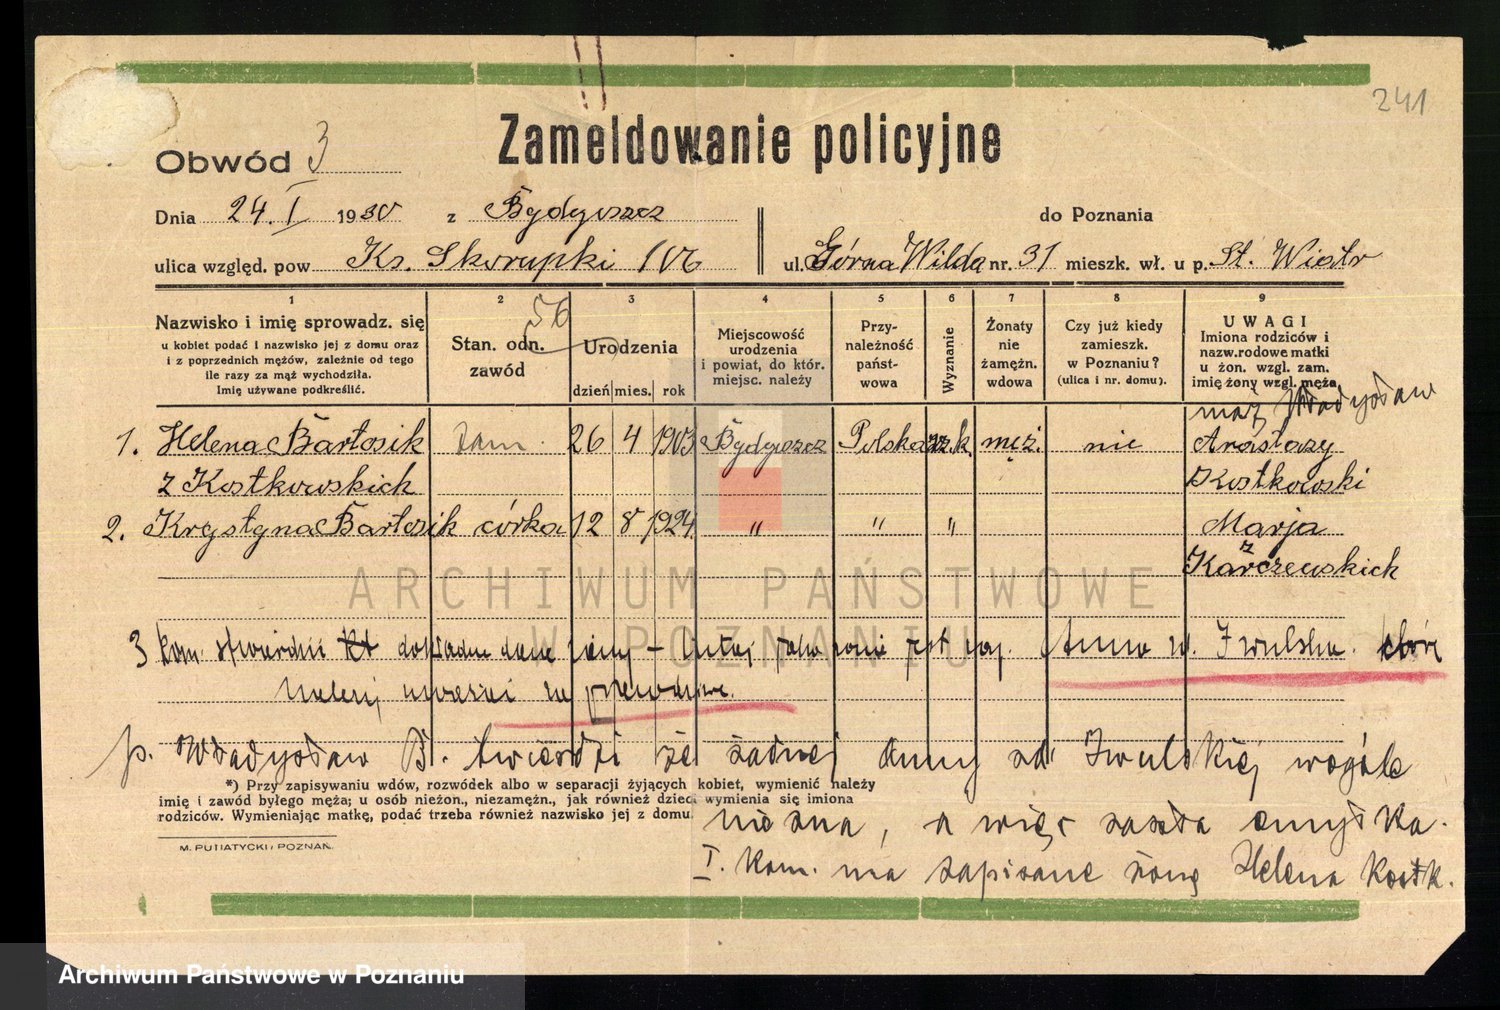 241
Zameldowanie policyjne
Obwód 3
Dnia 24. I 1930 z Bydgoszcz do Poznania
ulica względ. pow Ks. Skorupki 106 ul. Górna Wilda nr. 31 mieszk. wł. u p. St. Wiatr
1 2 3 4 5 6 7 8 9
56
Nazwisko i imię sprowadz. się
u kobiet podać i nazwisko jej z domu oraz
i z poprzednich mężów, zależnie od tego
ile razy za mąż wychodziła.
Imię używane podkreślić.
Stan. odn.
zawód
Urodzenia
dzień mies. rok
Miejscowość
urodzenia
i powiat, do któr.
miejsc. należy
Przy-
należność
państ-
wowa
Wyznanie
Żonaty
nie
żamężn.
wdowa
Czy już kiedy
zamieszk.
w Poznaniu?
(ulica i nr. domu).
UWAGI
Imiona rodziców i
nazw.rodowe matki
u żon. wzgl. zam.
imię żony wzgl. męża
mąż Władysław
1. Helena Bartosik zam. 26 4 1903 Bydgoszcz Polska rz.k. męż. nie Anastazy
z Kostkowskich Kostkowski
2. Krystyna Bartosik córka 12 8 1924 " " " Marja
z
Karczewskich
ARCHIWUM PAŃSTWOWE
W POZNANIU
3 kom. stwierdzi dokładne dane żony – Anna Izwulska. którą
należy
p. Władysław B. twierdzi że żadnej Anny zd. Izwulskiej wogóle
*) Przy zapisywaniu wdów, rozwódek albo w separacji żyjących kobiet, wymienić należy
imię i zawód byłego męża; u osób nieżon., niezamężn., jak również dzieci wymienia się imiona
rodziców. Wymieniając matkę, podać trzeba również nazwisko jej z domu.
nie zna, a więc zaszła omyłka.
M. PUTIATYCKI, POZNAŃ.
I. Kom. ma zapisane żonę Helena Kostk.
Archiwum Państwowe w Poznaniu